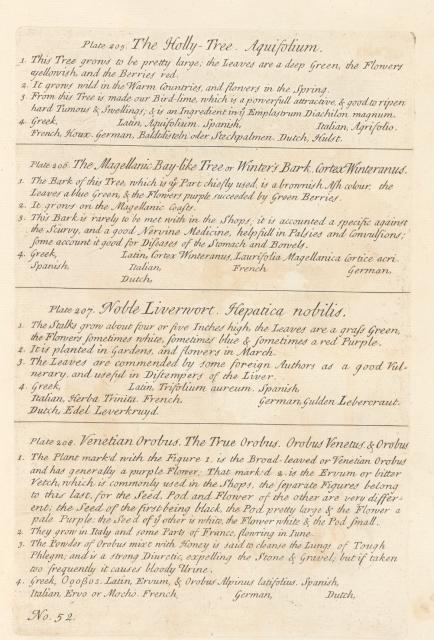 Plate 205. The Holly-Tree. Aquifolium.
1. This Tree grows to be pretty large; the Leaves are a deep Green, the Flowers
yellovish, and the Berries red.
2. It grows wild in the Warm Countries, and flowers in the Spring.
3. From this Tree is made our Bird-lime, which is a powerfull attractive, & good to ripen
hard Tumours & Swellings; & is an Ingredient in yͤ Emplastrum Diachilon magnum.
4. Greek, Latin, Aquifolium. Spanish, Italian, Agrifolio.
French, Houx. German, Baldtdisteln oder Stechpalmen. Dutch, Hulst.
Plate 206. The Magellanic Bay-like Tree or Winter's Bark. Cortex Winteranus.
1. The Bark of this Tree, which is yͤ Part chiefly used, is a brownish Ash colour, the
Leaves a blue Green, & the Flowers purple succeeded by Green Berries.
2. It grows on the Magellanic Coasts.
3. This Bark is rarely to be met with in the Shops, it is accounted a specific against
the Scurvy, and a good Nervine Medicine, helpfull in Palsies and Convulsions;
some account it good for Diseases of the Stomach and Bowels.
4. Greek, Latin, Cortex Winteranus, Laurifolia Magellanica Cortice acri.
Spanish, Italian, French German,
Dutch,
Plate 207. Noble Liverwort. Hepatica nobilis.
1. The Stalks grow about four or five Inches high, the Leaves are a grass Green,
the Flowers sometimes white, sometimes blue & sometimes a red Purple.
2. It is planted in Gardens, and flowers in March.
3. The Leaves are commended by some foreign Authors as a good Vul-
nerary, and useful in Distempers of the Liver.
4. Greek, Latin, Trifolium aureum. Spanish
Italian, Herba Trinita. French. German, Gulden Lebercraut.
Dutch, Edel Leverkruyd.
Plate 208. Venetian Orobus. The True Orobus. Orobus Venetus, & Orobus
1. The Plant mark'd with the Figure 1. is the Broad-leaved or Venetian Orobus
and has generally a purple Flower; That mark'd 2. is the Ervum or bitter
Vetch, which is commonly used in the Shops, the separate Figures belong
to this last, for the Seed, Pod and Flower of the other are very differ-
ent, the Seed of the first being black, the Pod pretty large & the Flower a
pale Purple: the Seed of yͤ other is white, the Flower white & the Pod small.
2. They grow in Italy and some Parts of France, flowring in June.
3. The Powder of Orobus mixt with Honey is said to cleanse the Lungs of Tough
Phlegm; and is a strong Diuretic, expelling the Stone & Gravel; but if taken
too frequently it causes bloody Urine.
4. Greek, Latin, Ervum, & Orobus Alpinus latifolius. Spanish,
Italian, Ervo or Mocho. French, German, Dutch,
No. 52.